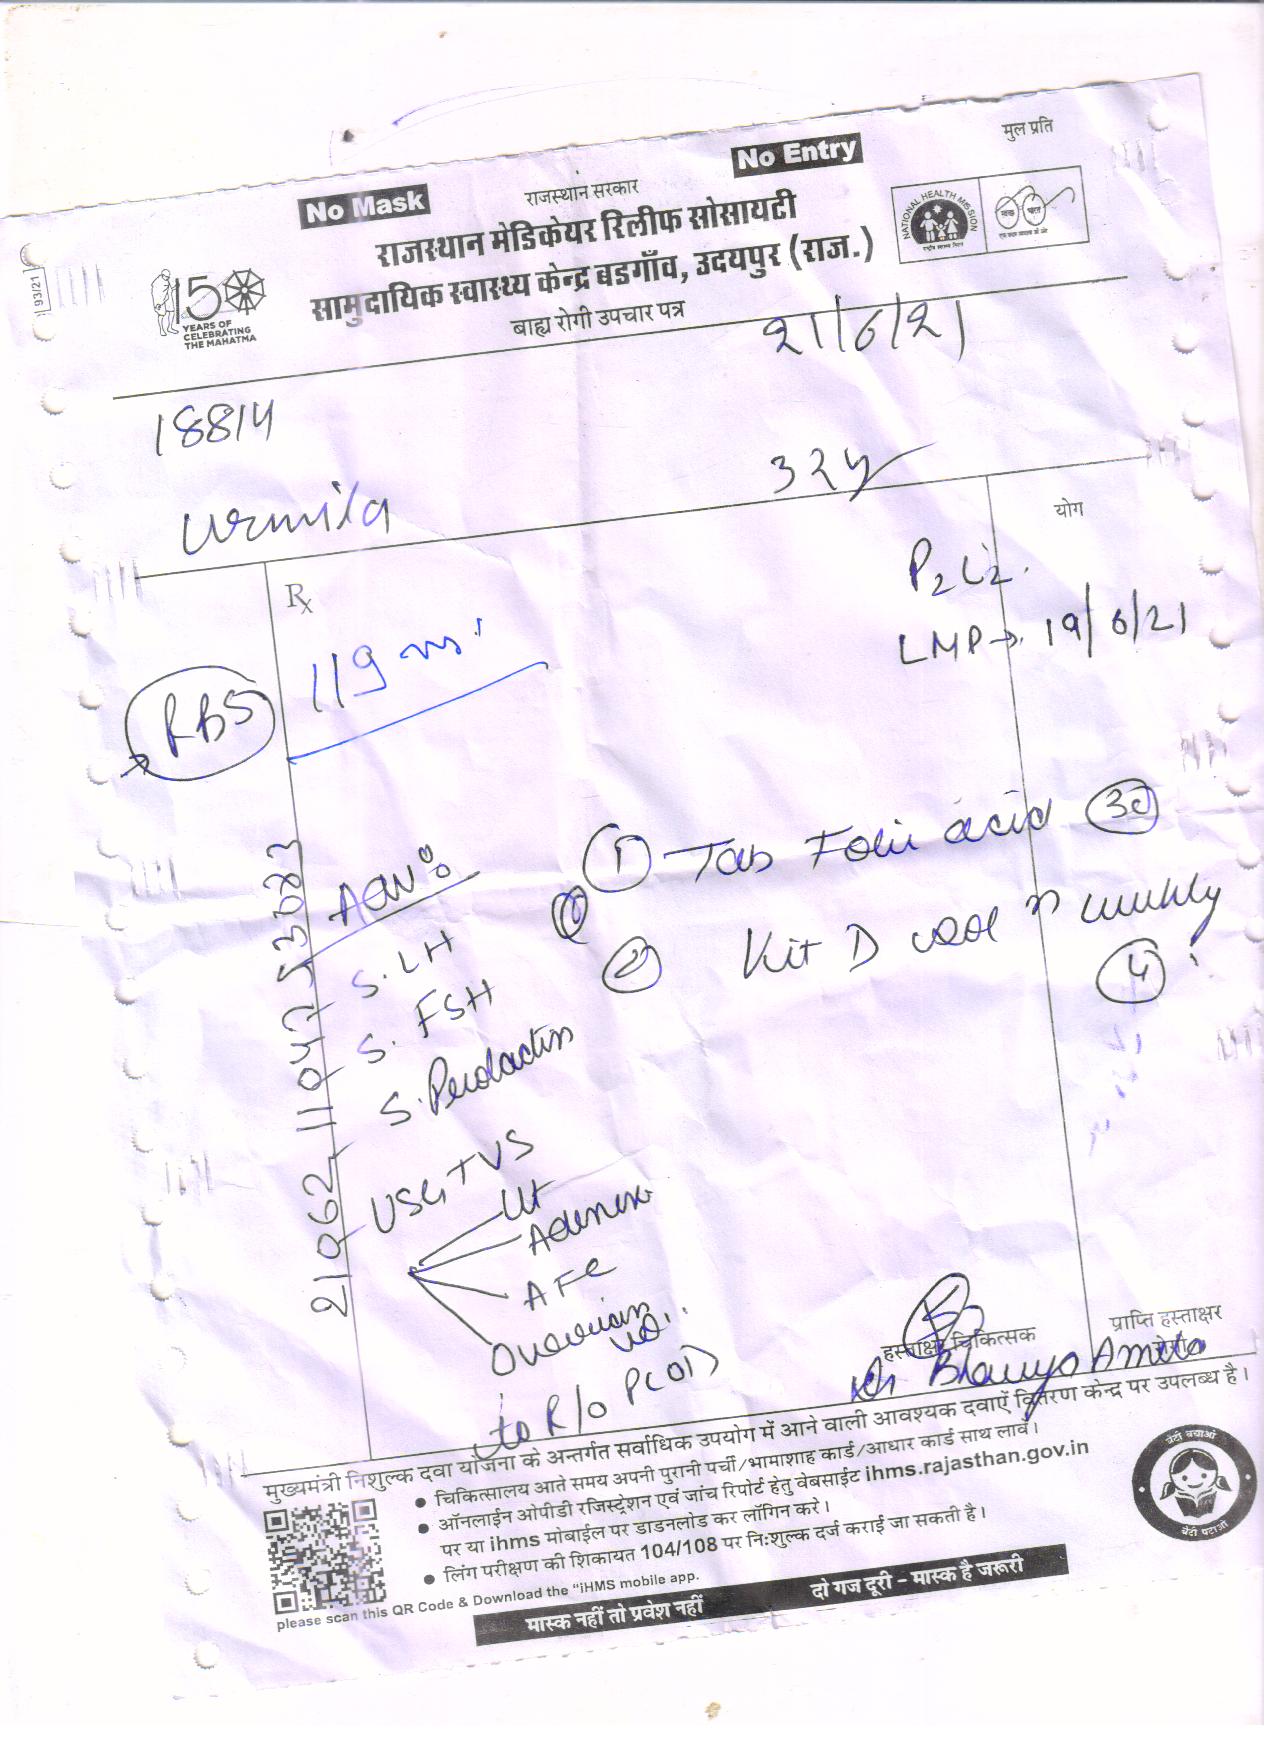 मुल प्रति
No Mask
No Entry
राजस्थान सरकार
राजस्थान मेडिकेयर रिलीफ सोसायटी
सामुदायिक स्वास्थ्य केन्द्र बडगाँव, उदयपुर (राज.)
बाह्य रोगी उपचार पत्र
NATIONAL HEALTH MISSION
93/21
150
YEARS OF
CELEBRATING
THE MAHATMA
21/6/21
18814
32y
Urmila
योग
Rx
P2L2
LMP → 19/6/21
RBS
119
Adv:
① Tab Folic acid 30
S. LH
② Kit D weekly ④
S. FSH
S. Prolactin
USG TVS
Ut
Adenexa
AFC
Ovarian
to R/o PCOD
हस्ताक्षर चिकित्सक
प्राप्ति हस्ताक्षर
रोगी
मुख्यमंत्री निशुल्क दवा योजना के अन्तर्गत सर्वाधिक उपयोग में आने वाली आवश्यक दवाएँ वितरण केन्द्र पर उपलब्ध है।
● चिकित्सालय आते समय अपनी पुरानी पर्ची/भामाशाह कार्ड/आधार कार्ड साथ लावें।
● ऑनलाईन ओपीडी रजिस्ट्रेशन एवं जांच रिपोर्ट हेतु वेबसाईट ihms.rajasthan.gov.in
पर या ihms मोबाईल पर डाडनलोड कर लॉगिन करे।
● लिंग परीक्षण की शिकायत 104/108 पर नि:शुल्क दर्ज कराई जा सकती है।
please scan this QR Code & Download the "iHMS mobile app.
मास्क नहीं तो प्रवेश नहीं
दो गज दूरी – मास्क है जरूरी
बेटी बचाओ
बेटी पढाओ